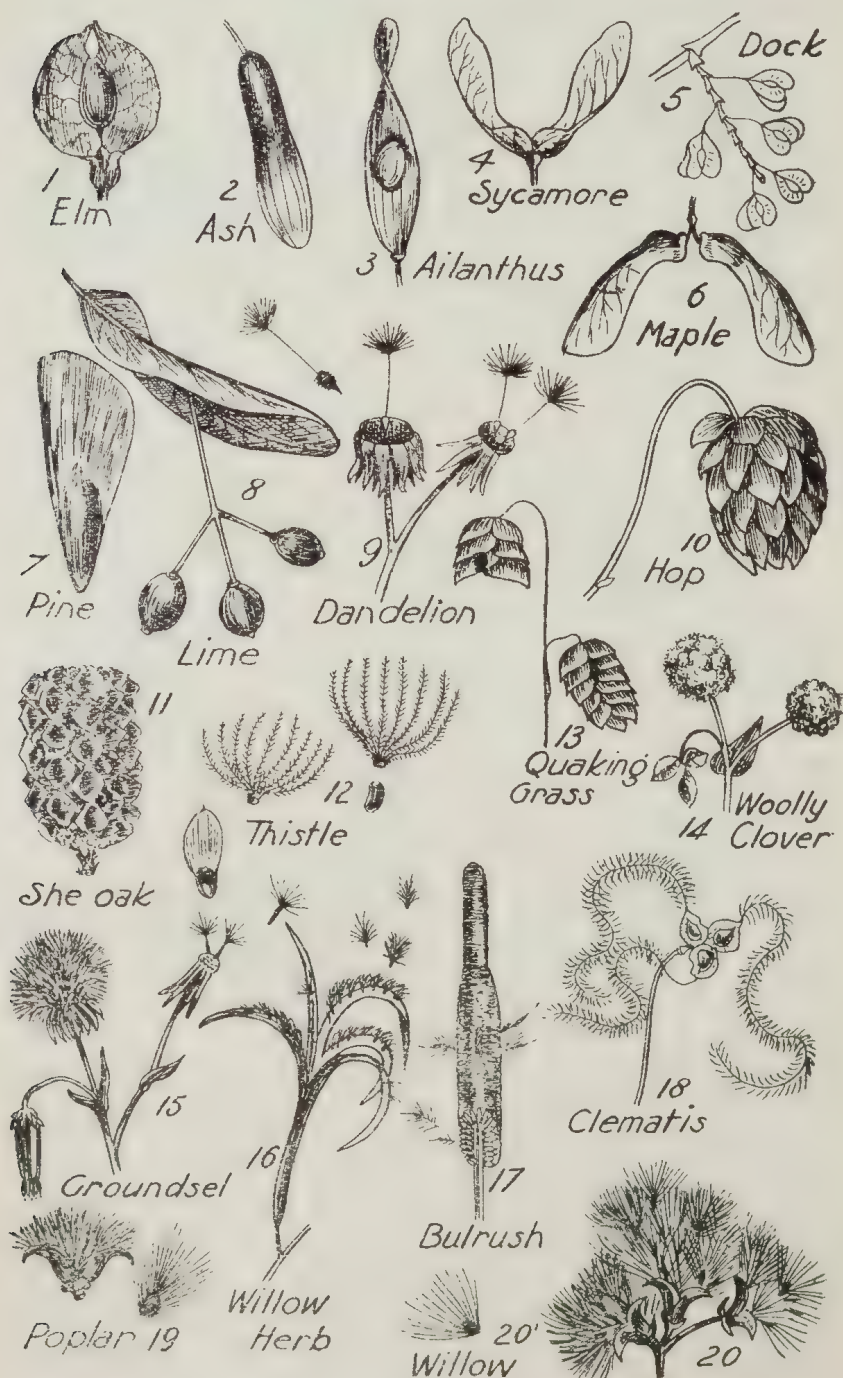 1
Elm
2
Ash
3 Ailanthus
4
Sycamore
Dock
5
6
Maple
7
Pine
8
Lime
9
Dandelion
10
Hop
11
She oak
12
Thistle
13
Quaking
Grass
14 Woolly
Clover
15
Groundsel
16
Willow
Herb
17
Bulrush
18
Clematis
Poplar 19
20'
Willow
20